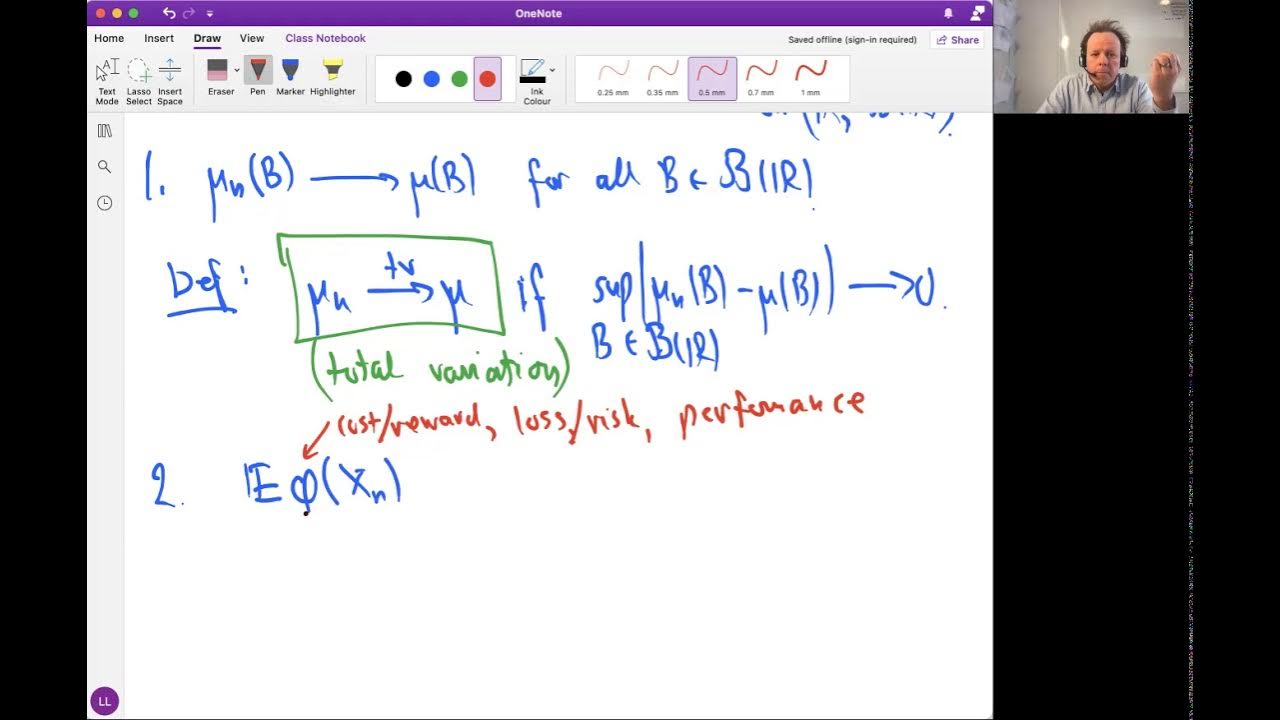 OneNote
Home Insert Draw View Class Notebook
Saved offline (sign-in required) Share
Text Mode Lasso Select Insert Space Eraser Pen Marker Highlighter Ink Colour 0.25 mm 0.35 mm 0.5 mm 0.7 mm 1 mm
1. μₙ(B) ⟶ μ(B) for all B ∈ 𝓑(ℝ)
Def: μₙ —tv→ μ if sup |μₙ(B) - μ(B)| ⟶ 0.
B ∈ 𝓑(ℝ)
(total variation)
cost/reward, loss/risk, performance
2. 𝔼 φ(Xₙ)
LL